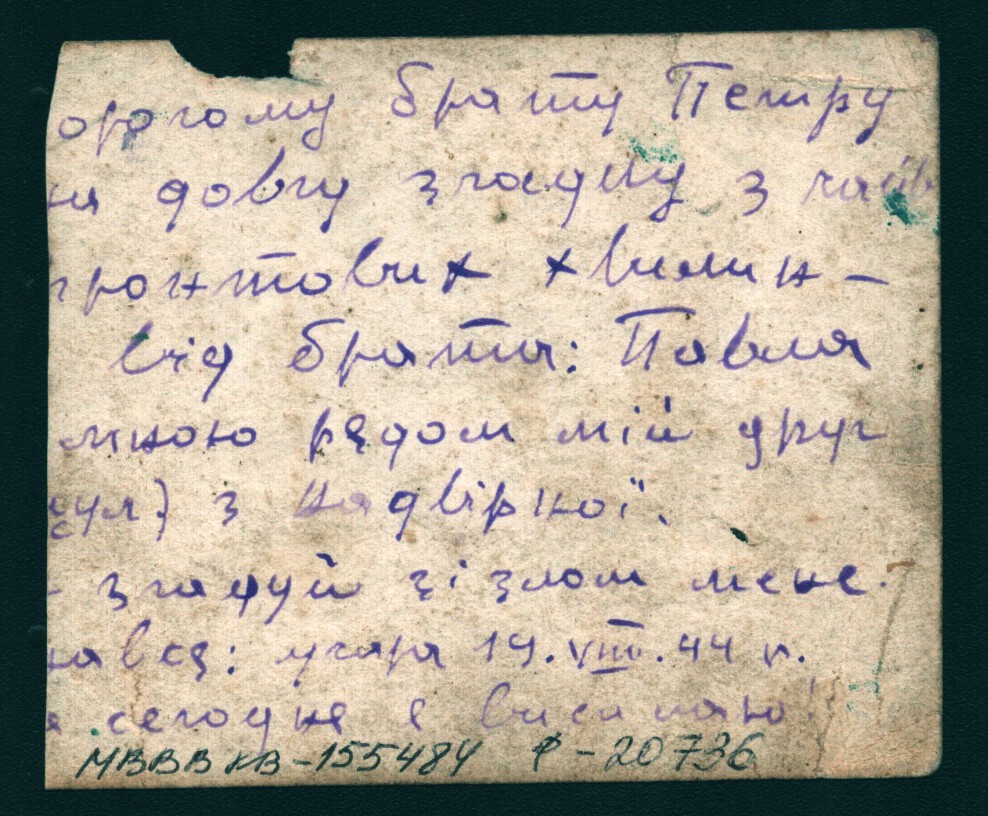 орогому брату Петру
на довгу згадку з часів
фронтових хвилин —
від брата: Павла
мною рядом мій друг
з Надвірної.
- згадуй зі злом мене.
19.VIII.44 р.
сегодня я висилаю!
МВВВ КВ-155484 Ф-20736